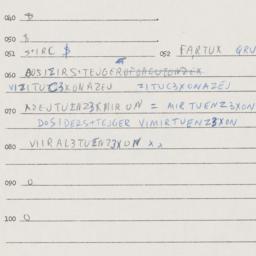 040 $
050 $
051 S+IRC $ 052 FARTUX GRU
060 BOSIZIRS+TEJGER
VIZITUC3XONAZEJ =ITUC3XONAZEJ
070 AZEJTUENZ3XMIRON = MIRTUENZ3XON
DOSIDERS+TEJGER VIMIRTUENZ3XON
080 VIIRAL3TUENZ3XON x x
090 0
100 0